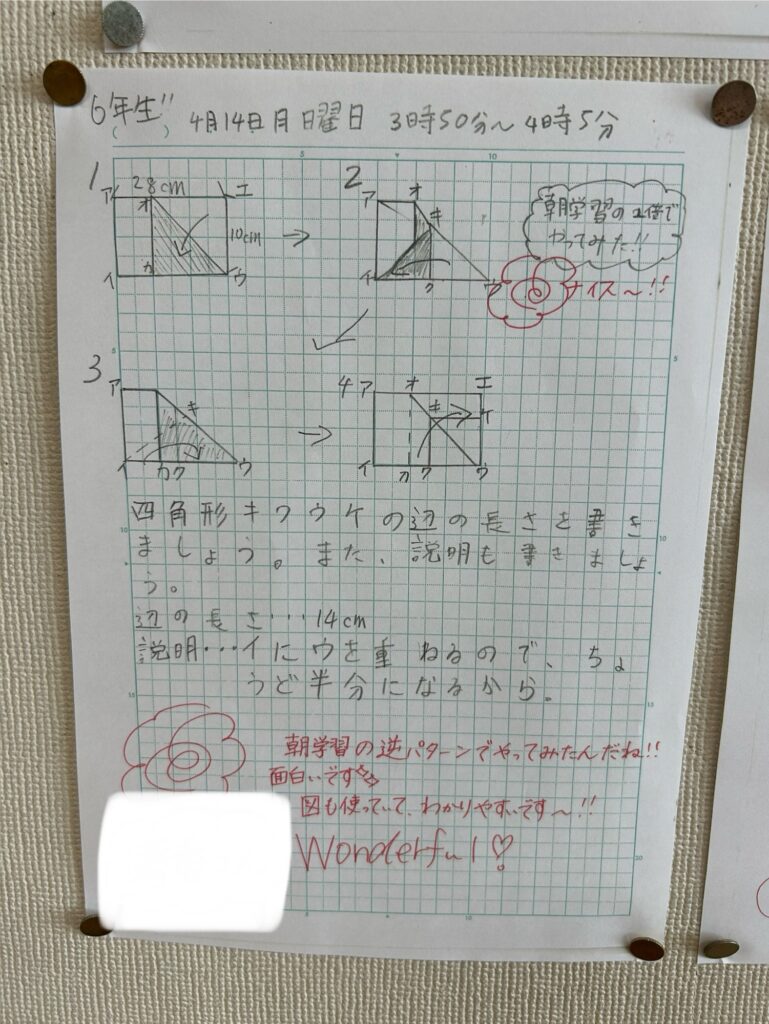 6年生!!
( )
4月14日月曜日 3時50分〜4時5分
1
28cm
ア オ エ
10cm
イ カ ウ
2
ア オ
キ
イ ク ウ
朝学習の2倍で
やってみた!!
ナイス〜!!
3
ア
キ
イ カ ク ウ
4
ア オ エ
キ ケ
イ カ ク ウ
四角形キクウケの辺の長さを書き
ましょう。また、説明も書きましょ
う。
辺の長さ…14cm
説明…イにウを重ねるので、ちょ
うど半分になるから。
朝学習の逆パターンでやってみたんだね!!
面白いです
図も使っていて、わかりやすいです〜!!
Wonderful!